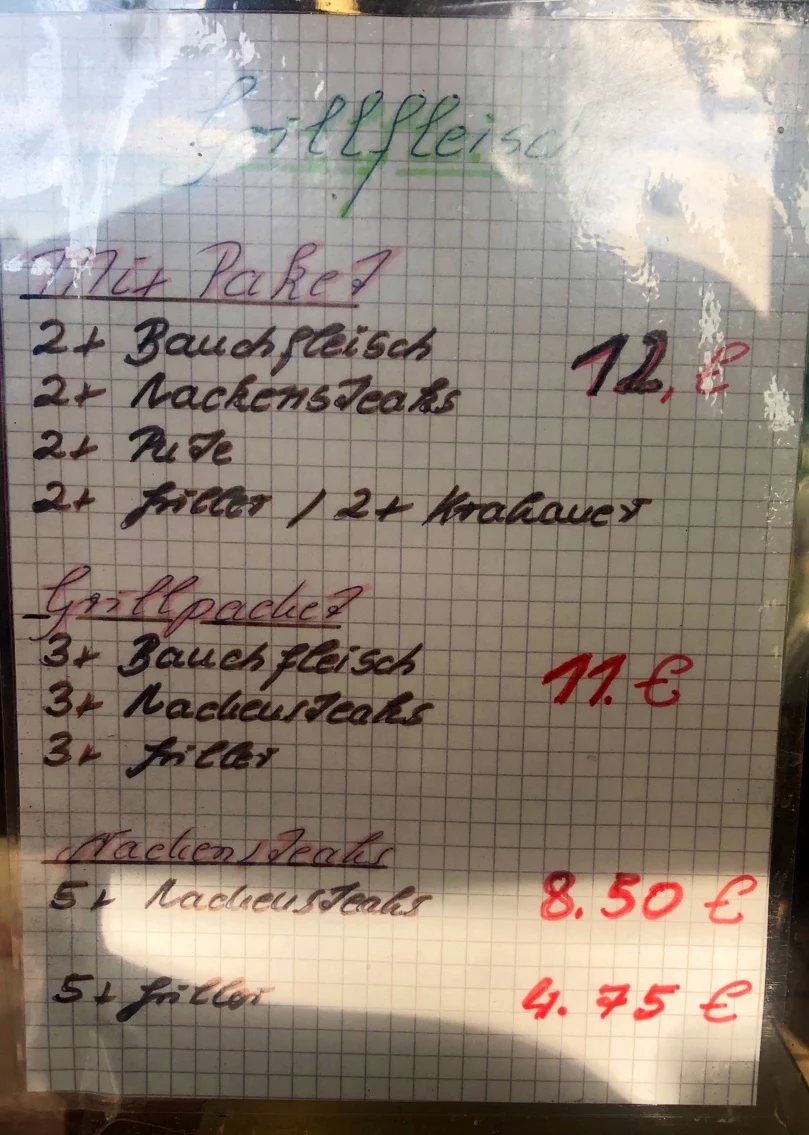 Grillfleisch
Mix Paket
2x Bauchfleisch 12,€
2x Nackensteaks
2x Pute
2x Griller / 2x Krakauer
Grillpacket
3x Bauchfleisch
3x Nackensteaks 11.€
3x Griller
Nackensteaks
5x Nackensteaks 8.50 €
5x Griller 4.75 €